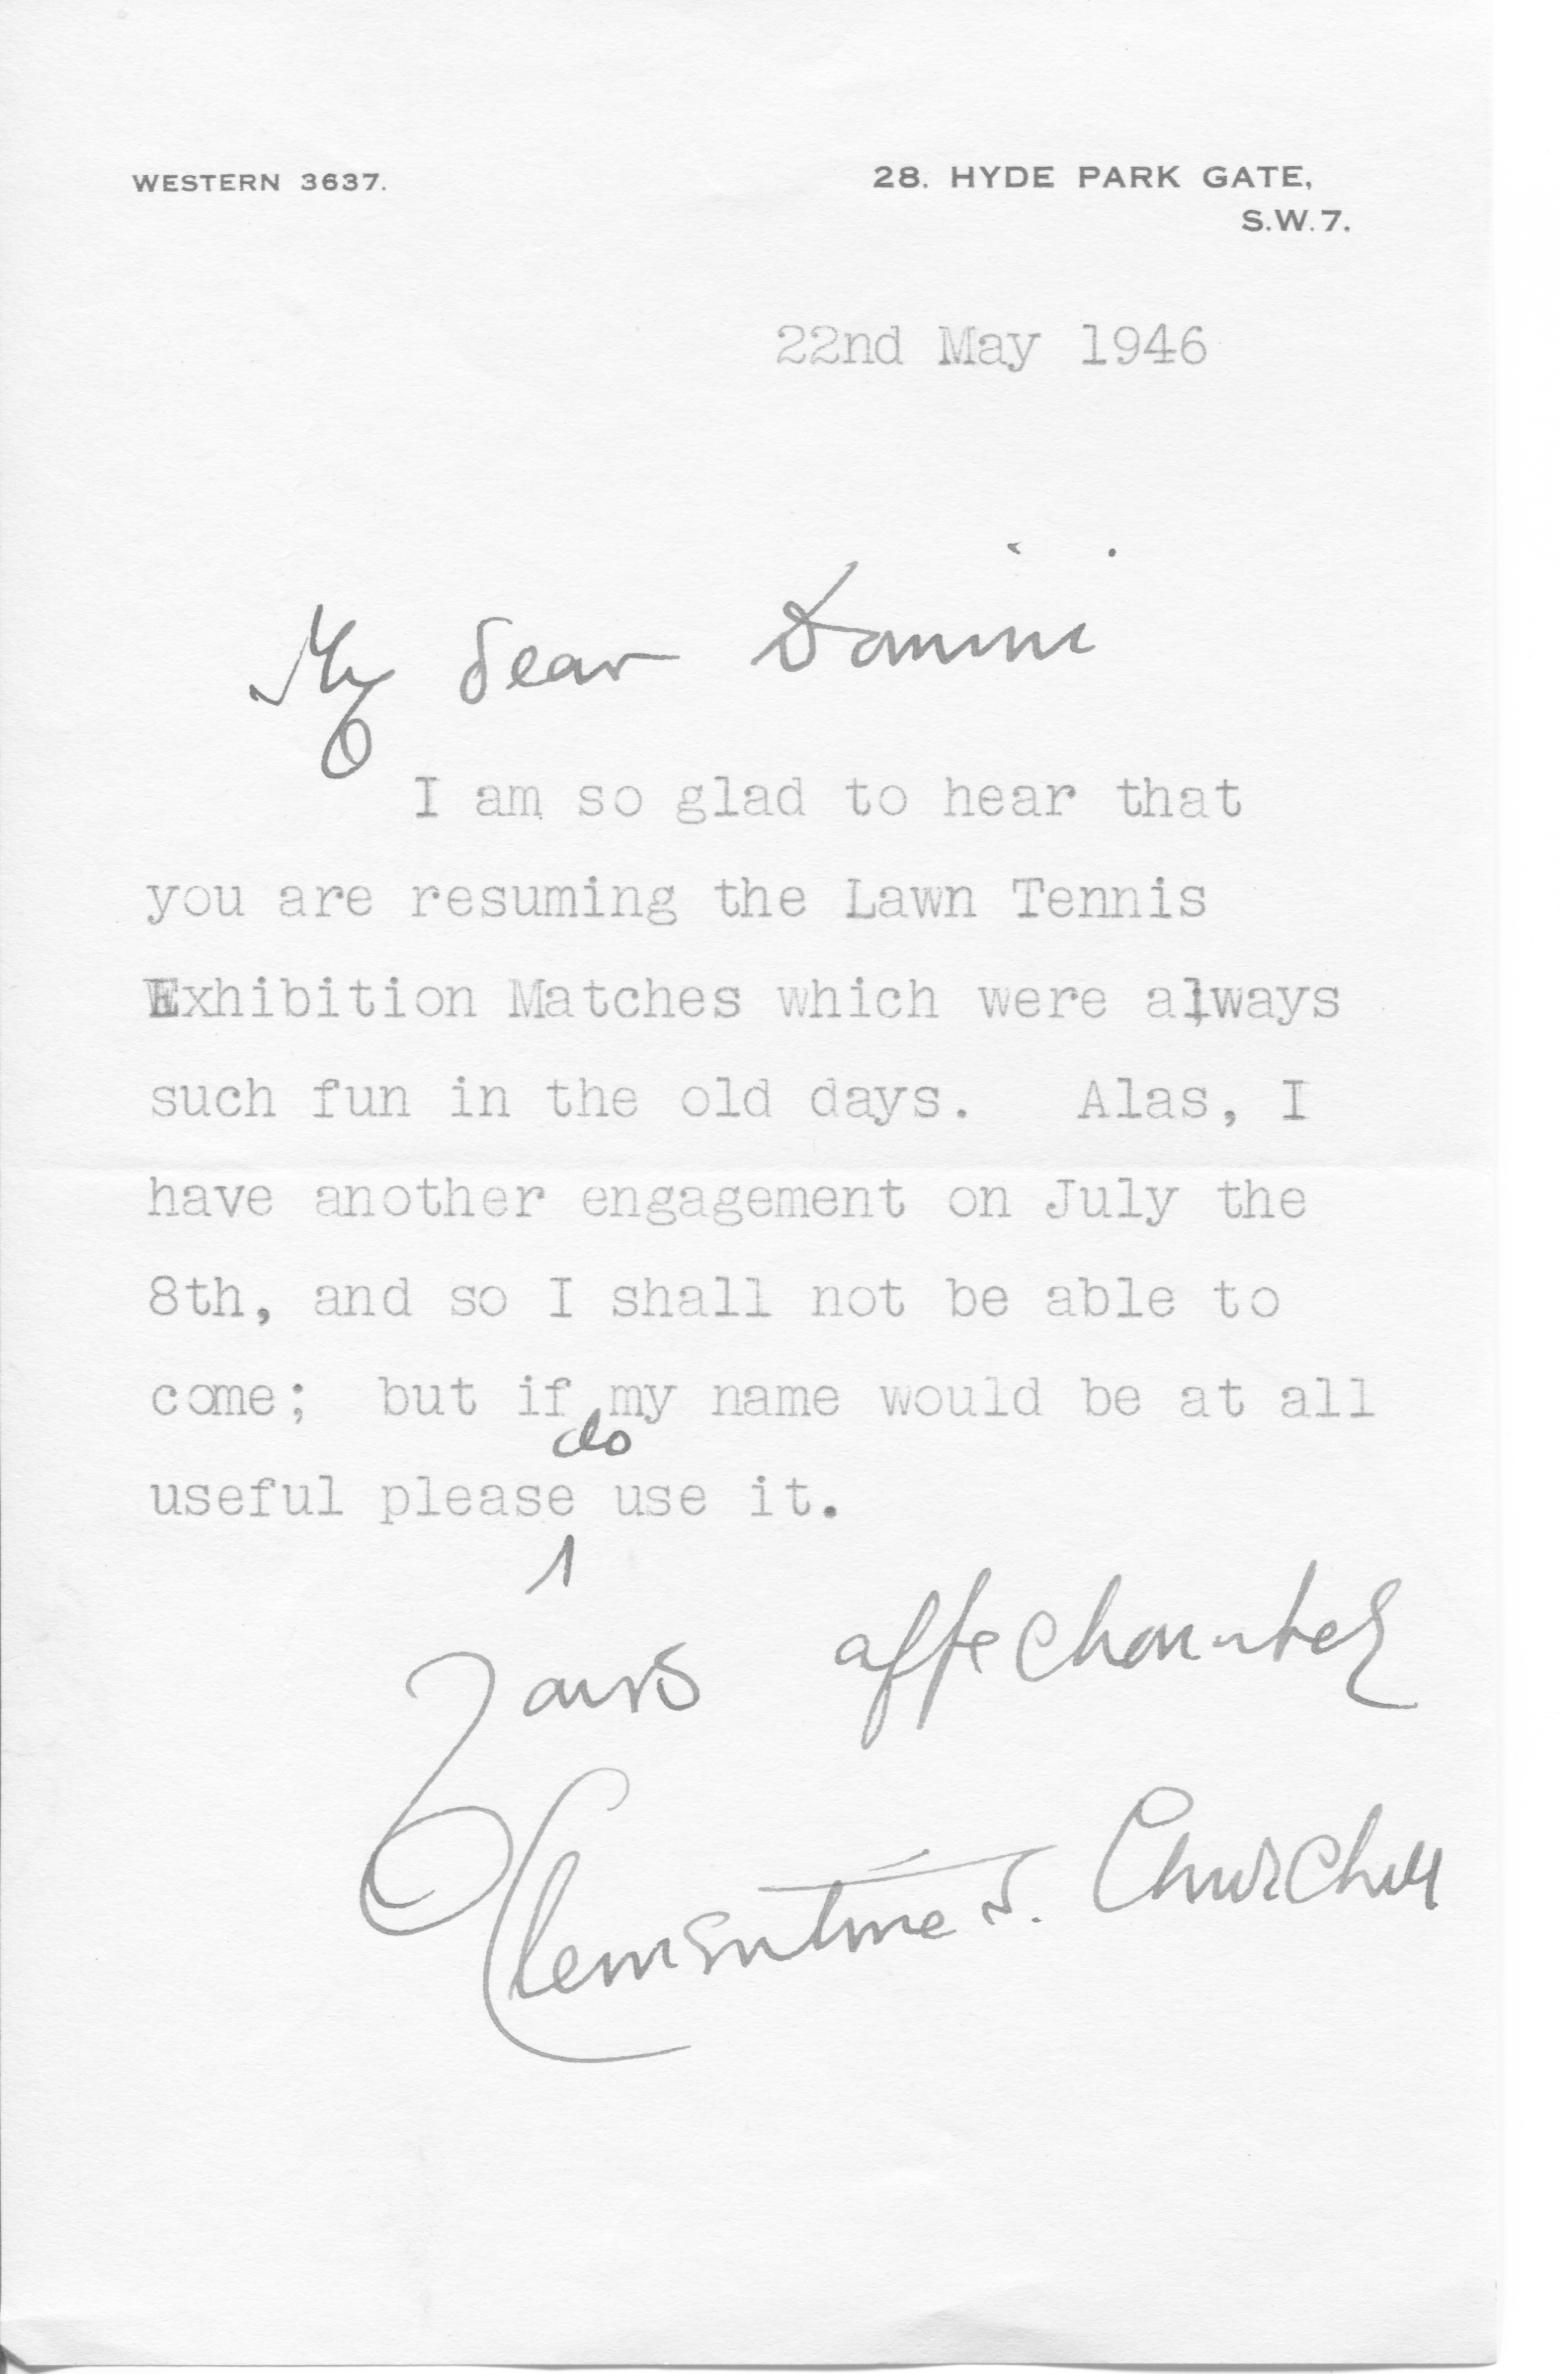 WESTERN 3637.
28. HYDE PARK GATE,
S.W.7.
22nd May 1946
My dear
I am so glad to hear that
you are resuming the Lawn Tennis
Exhibition Matches which were always
such fun in the old days. Alas, I
have another engagement on July the
8th, and so I shall not be able to
come; but if my name would be at all
useful please do use it.
Yours affectionately
Clementine S. Churchill